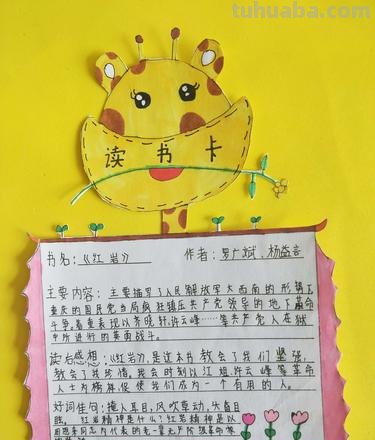 tuhuaba.com
读书卡
书名：《红岩》 作者：罗广斌、杨益言
主要内容：主要描写了人民解放军大西南的形势下
重庆的国民党当局疯狂镇压共产党领导的地下革命
斗争。着重表现以齐晓轩、许云峰……等共产党人在狱
中所进行的英勇战斗。
读后感想：《红岩》，是这本书教会了我们坚强，
教会了我珍惜。我会时刻以江姐、许云峰等革命
人士为榜样，促使我们成为一个有用的人。
好词佳句：掩人耳目、风吹草动、大
胆。红岩精神是什么？红岩精神是以